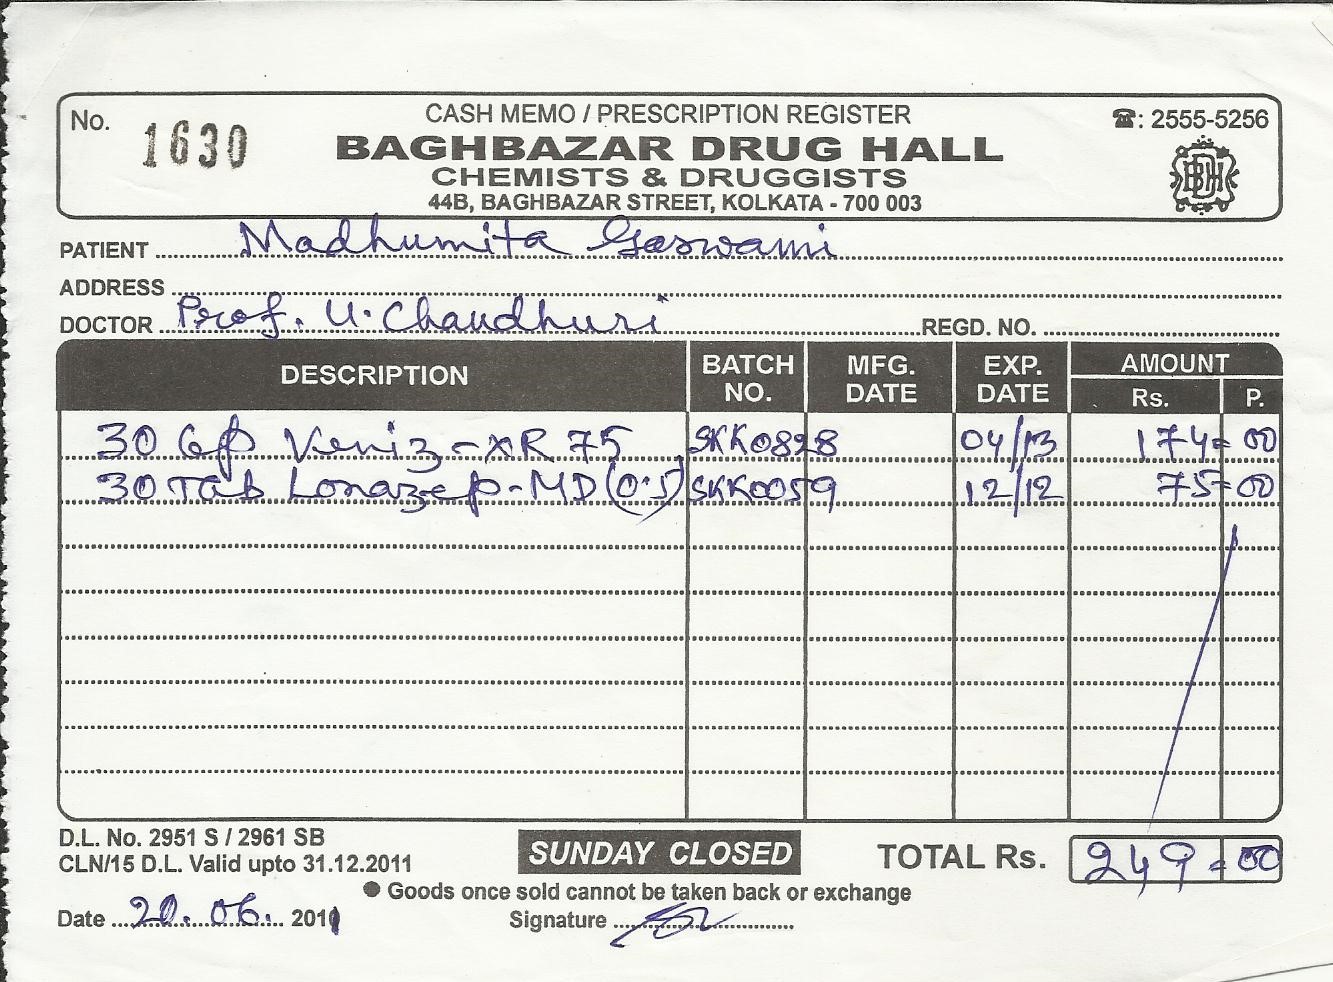 No. 1630
CASH MEMO / PRESCRIPTION REGISTER
☎: 2555-5256
BAGHBAZAR DRUG HALL
BDH
CHEMISTS & DRUGGISTS
44B, BAGHBAZAR STREET, KOLKATA - 700 003
PATIENT Madhumita Goswami
ADDRESS
DOCTOR Prof. U. Chaudhuri REGD. NO.
DESCRIPTION BATCH NO. MFG. DATE EXP. DATE AMOUNT Rs. P.
30 Cap Veniz-XR 75 SKK0828 04/13 174=00
30 Tab Lonazep-MD (0.5) SKK0059 12/12 75=00
D.L. No. 2951 S / 2961 SB
CLN/15 D.L. Valid upto 31.12.2011
SUNDAY CLOSED
TOTAL Rs. 249=00
● Goods once sold cannot be taken back or exchange
Date 20.06. 2011 Signature